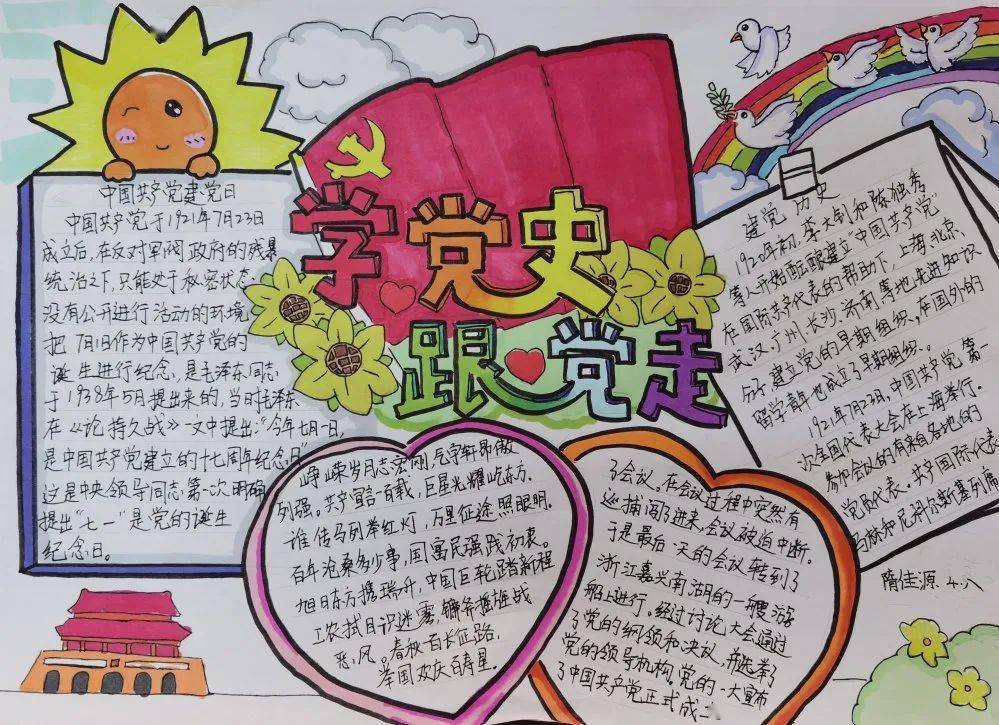 学党史
跟党走
中国共产党建党日
中国共产党于1921年7月23日
成立后,在反对军阀政府的残暴
统治之下,只能处于秘密状态
没有公开进行活动的环境
把7月1日作为中国共产党的
诞生进行纪念,是毛泽东同志
于1938年5月提出来的,当时毛泽东
在《论持久战》一文中提出:"今年七月一日,
是中国共产党建立的十七周年纪念日"
这是中央领导同志第一次明确
提出"七一"是党的诞生
纪念日。
峥嵘岁月志宏刚,气宇轩昂傲
列强。共产宣言百载,巨星光耀屹东方。
谁传马列举红灯,万里征途照眼明。
百年沧桑多少事,国富民强践初衷。
旭日东方携瑞升,中国巨轮踏新程
工农拭目识迷雾,镰斧推雄战
恶风。春秋百长征路,
举国欢庆百寿星。
建党历史
1920年初,李大钊和陈独秀,
等人开始酝酿建立"中国共产党
在国际共产代表的帮助下,上海,北京、
武汉,广州,长沙,济南等地先进知识
分子建立党的早期组织。在国外的
留学青年也成立了早期组织。
1921年7月23日,中国共产党第一
次全国代表大会在上海举行。
参加会议的有来自各地的
党员代表。共产国际代表
马林和尼科尔斯基列席
了会议。在会议过程中突然有
巡捕闯了进来,会议被迫中断。
于是最后一天的会议转到了
浙江嘉兴南湖的一艘游
船上进行。经过讨论大会通过
了党的纲领和决议,并选举了
党的领导机构。党的一大宣布
了中国共产党正式成立
隋佳源 4.八